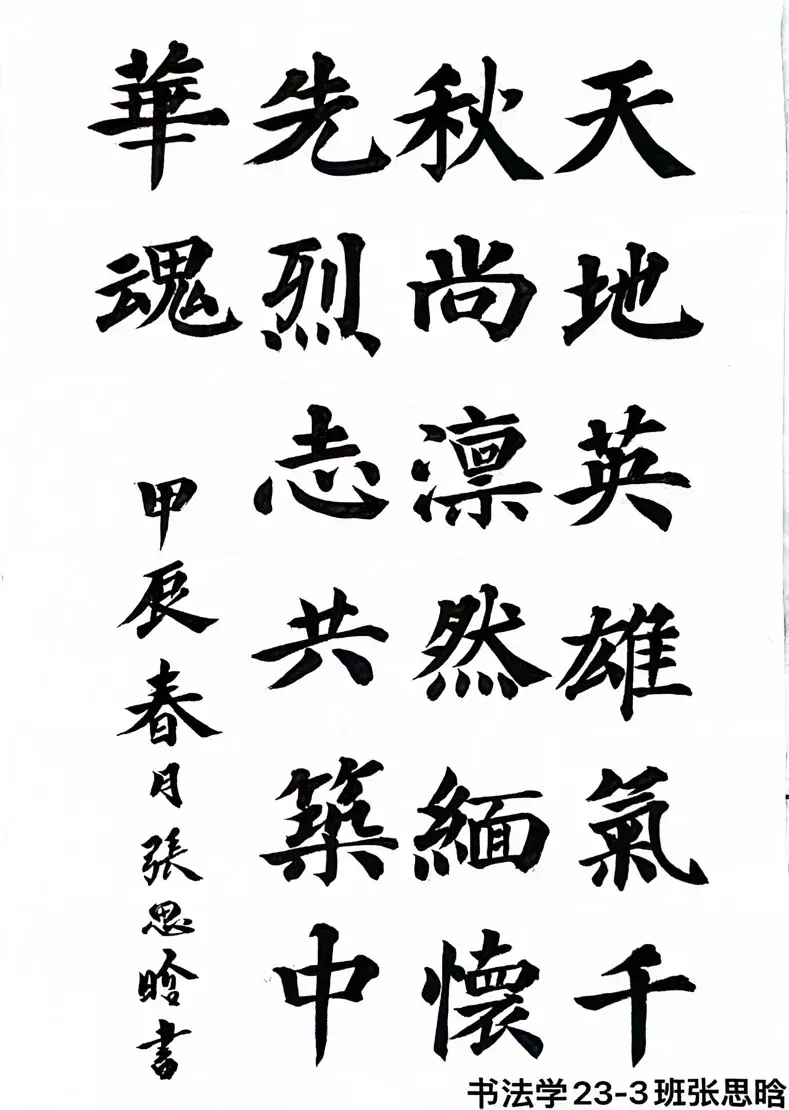 天地英雄氣千
秋尚凛然緬懷
先烈志共築中
華魂
甲辰春月張思晗書
书法学23-3班张思晗